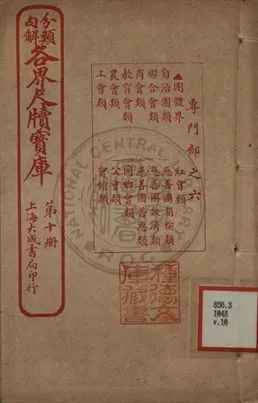 分類
句解
各界尺牘寶庫
第十册
上海大成書局印行
專門部之六
▲團體界
自治團類
聯合會類
商會類
教育會類
農會類
工會類
紅會類
慈善團
慈善團
慈善團
同鄉會類
公會類
會館類
NATIONAL CENTRAL
種德堂
藏書
856.3
1048
v.10